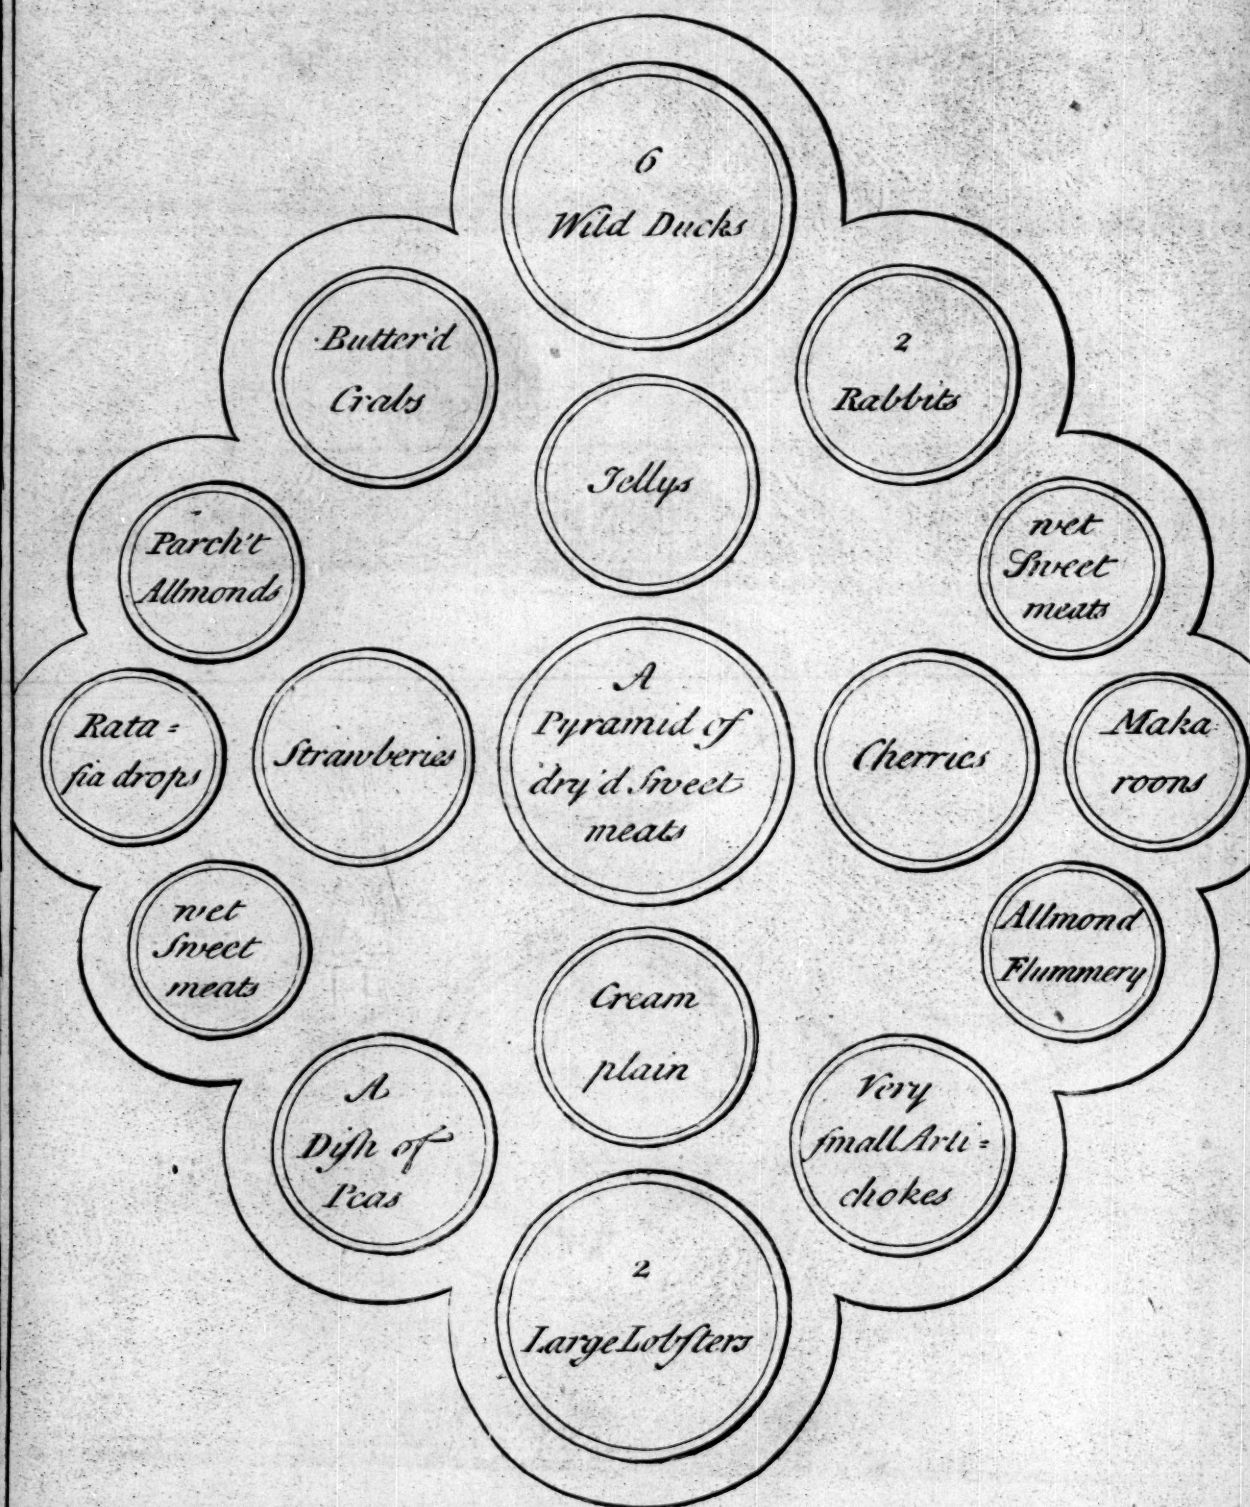 6
Wild Ducks
Butter'd
Crabs
2
Rabbits
Jellys
Parch't
Allmonds
wet
Sweet
meats
Rata =
fia drops
Strawberies
A
Pyramid of
dry'd Sweet
meats
Cherries
Maka
roons
wet
Sweet
meats
Cream
plain
Allmond
Flummery
A
Diſh of
Peas
Very
ſmall Arti =
chokes
2
Large Lobſters